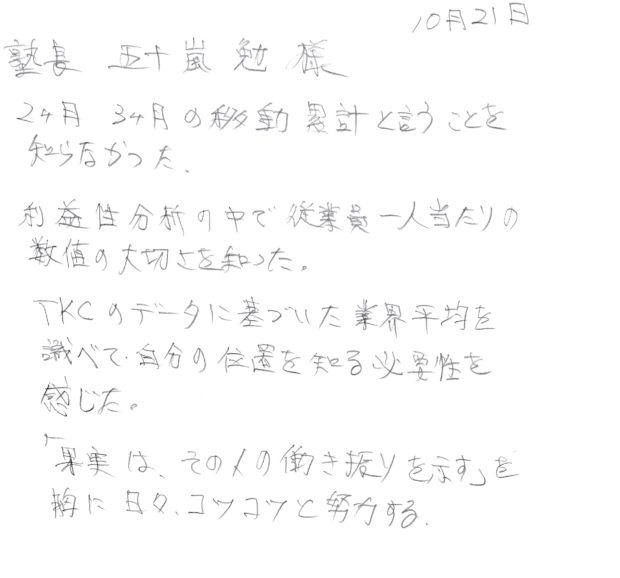 10月21日
塾長 五十嵐 勉 様
24月 34月の移動累計と言うことを
知らなかった.
利益性分析の中で従業員一人当たりの
数値の大切さを知った。
TKCのデータに基づいた業界平均を
識べて自分の位置を知る必要性を
感じた。
「果実は、その人の働き振りを示す」を
胸に日々、コツコツと努力する.